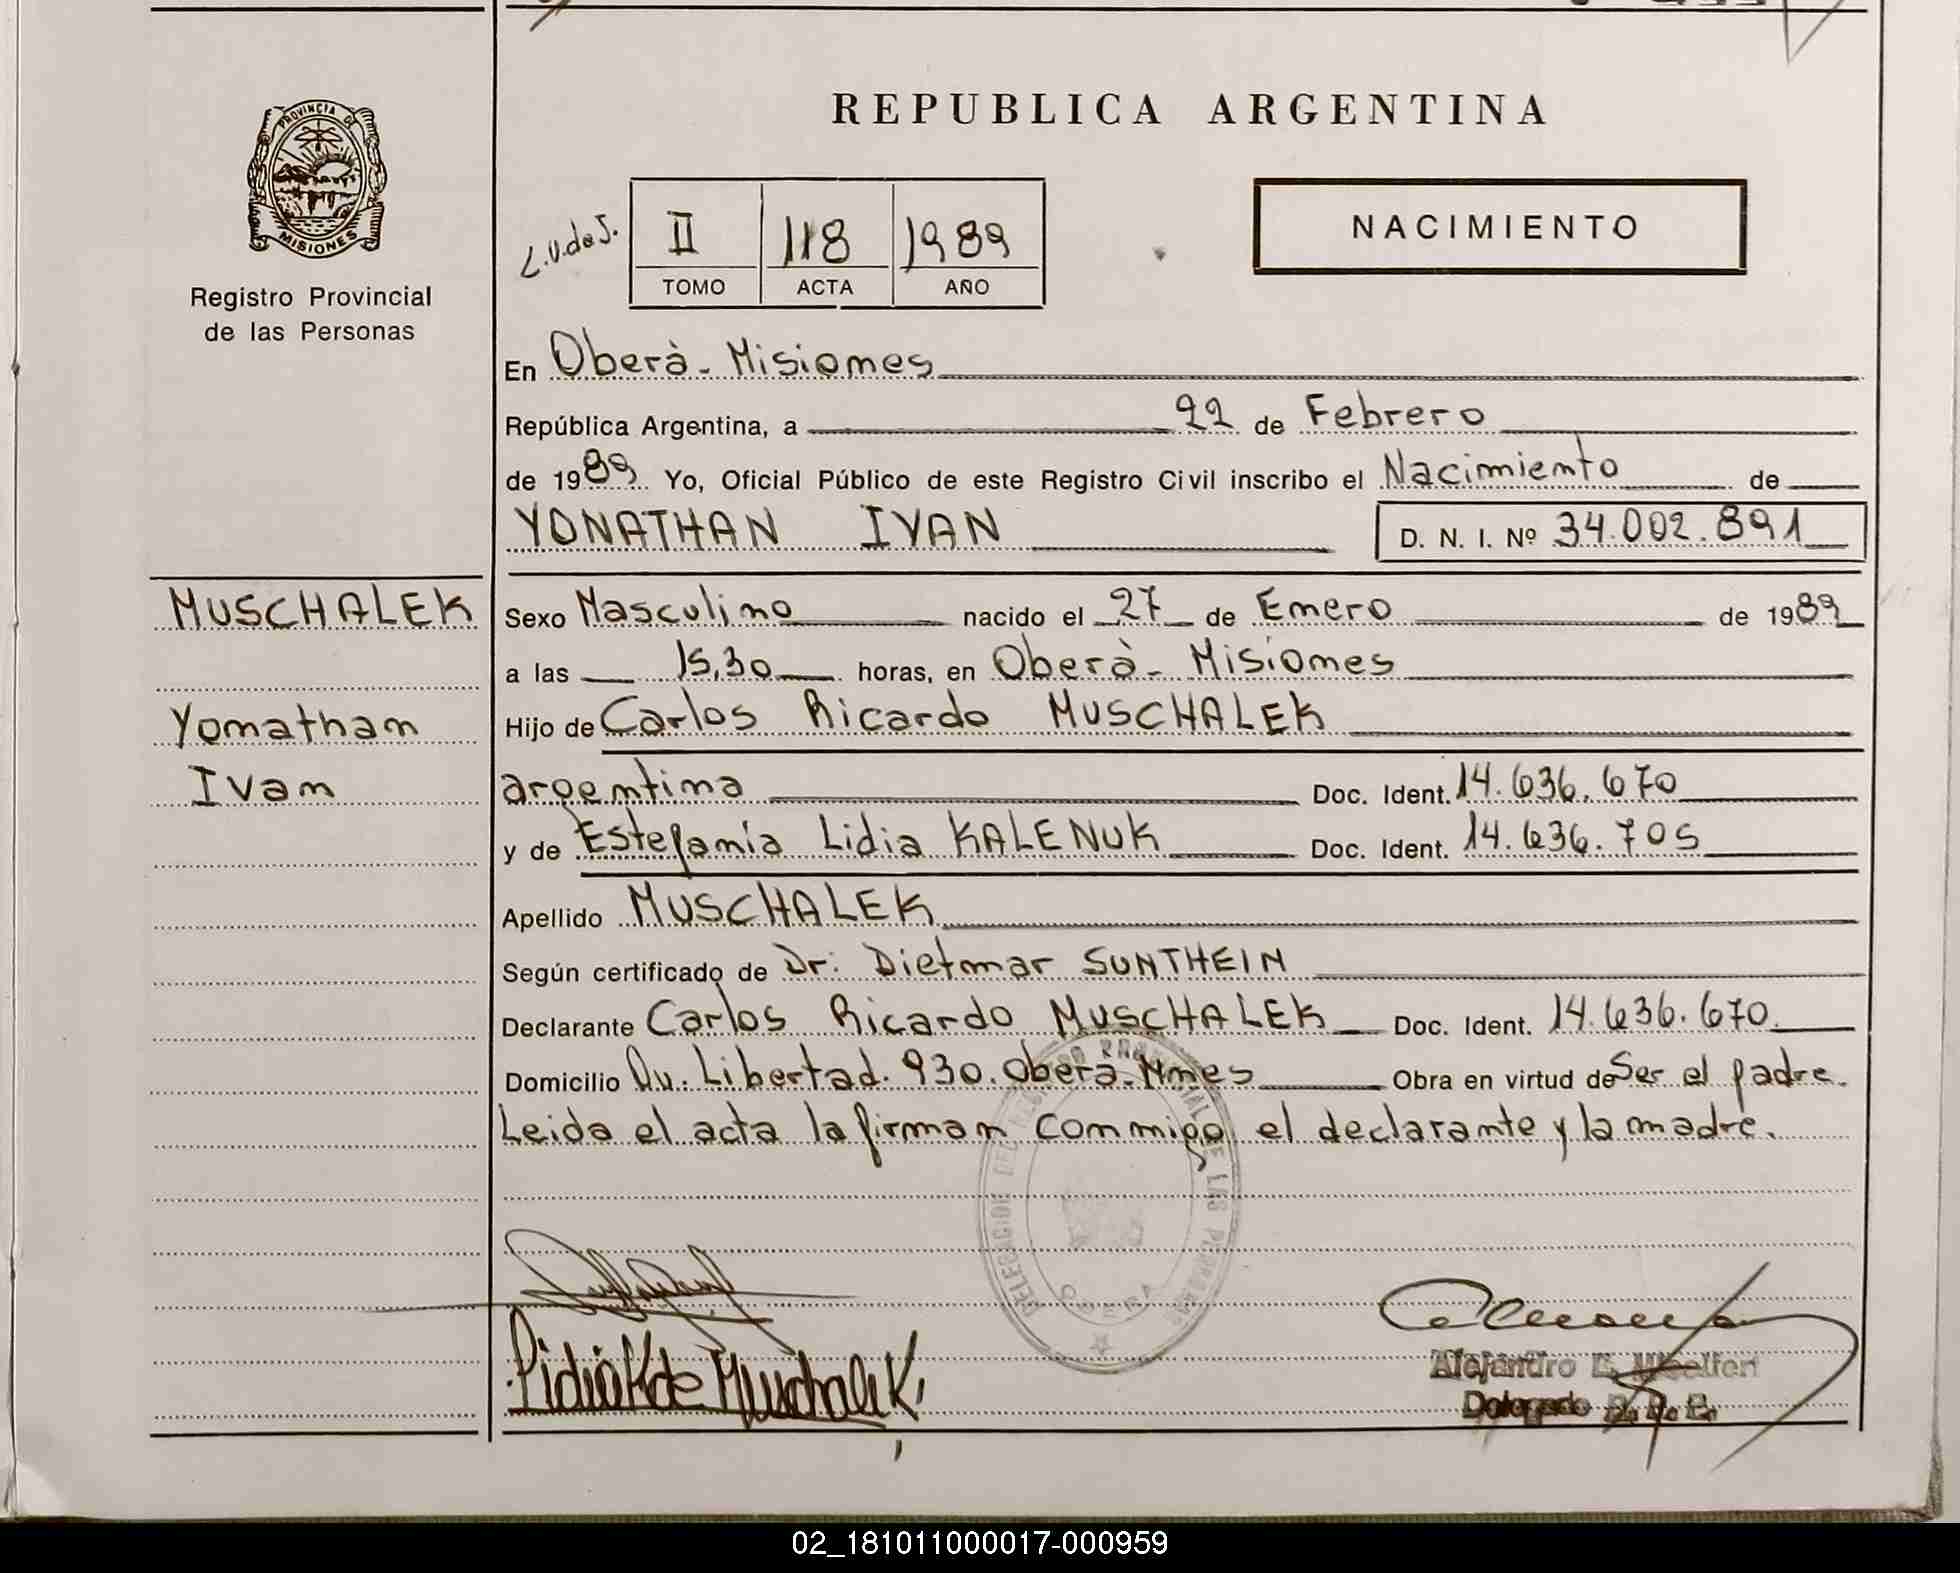 REPUBLICA ARGENTINA
PROVINCIA DE
MISIONES
Registro Provincial
de las Personas
L.V.de J.
II 118 1989
TOMO ACTA AÑO
NACIMIENTO
En Oberà - Misiones
República Argentina, a 22 de Febrero
de 1989 Yo, Oficial Público de este Registro Civil inscribo el Nacimiento de
YONATHAN IVAN D. N. I. Nº 34.002.891
MUSCHALEK
Yonathan
Ivan
Sexo Masculino nacido el 27 de Enero de 1989
a las 15,30 horas, en Oberà - Misiones
Hijo de Carlos Ricardo MUSCHALEK
argentina Doc. Ident. 14.636.670
y de Estefanía Lidia KALENUK Doc. Ident. 14.636.705
Apellido MUSCHALEK
Según certificado de Dr. Dietmar SUNTHEIN
Declarante Carlos Ricardo MUSCHALEK Doc. Ident. 14.636.670.
Domicilio Av. Libertad. 930. Oberà. Mnes Obra en virtud de Ser el padre.
Leida el acta la firman conmigo el declarante y la madre.
DELEGACION DEL REGISTRO PROVINCIAL DE LAS PERSONAS
OBERA
Lidia K de Muschalek
Alejandro
Delegado
02_181011000017-000959